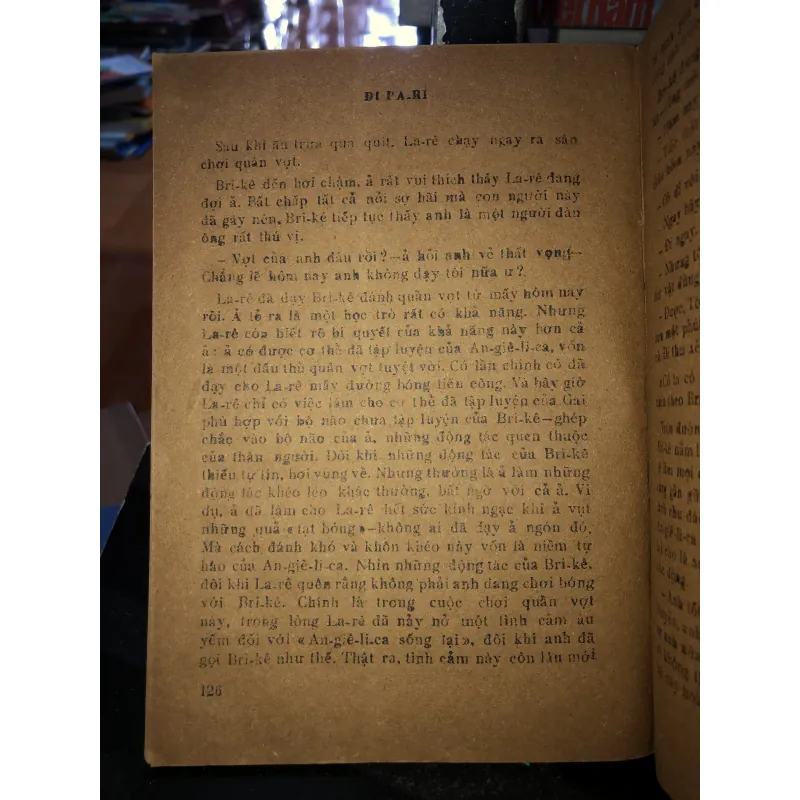 ĐI PA-RI
Sau khi ăn trưa qua quít, La-rê chạy ngay ra sân
chơi quần vợt.
Bri-kê đến hơi chậm, ả rất vui thích thấy La-rê đang
đợi ả. Bất chấp tất cả nỗi sợ hãi mà con người này
đã gây nên, Bri-kê tiếp tục thấy anh là một người đàn
ông rất thú vị.
– Vợt của anh đâu rồi?—ả hỏi anh vẻ thất vọng—
Chẳng lẽ hôm nay anh không dạy tôi nữa ư?
La-rê đã dạy Bri-kê đánh quần vợt từ mấy hôm nay
rồi. Ả tỏ ra là một học trò rất có khả năng. Nhưng
La-rê còn biết rõ bí quyết của khả năng này hơn cả
ả: ả có được cơ thể đã tập luyện của An-giê-li-ca, vốn
là một đấu thủ quần vợt tuyệt vời. Có lần chính cô đã
dạy cho La-rê mấy đường bóng tiến công. Và bây giờ
La-rê chỉ có việc làm cho cơ thể đã tập luyện của Gai
phù hợp với bộ não chưa tập luyện của Bri-kê—ghép
chắc vào bộ não của ả, những động tác quen thuộc
của thân người. Đôi khi những động tác của Bri-kê
thiếu tự tin, hơi vụng về. Nhưng thường là ả làm những
động tác khéo léo khác thường, bất ngờ với cả ả. Ví
dụ, ả đã làm cho La-rê hết sức kinh ngạc khi ả vụt
những quả «tạt bóng»—không ai đã dạy ả ngón đó.
Mà cách đánh khó và khôn khéo này vốn là niềm tự
hào của An-giê-li-ca. Nhìn những động tác của Bri-kê,
đôi khi La-rê quên rằng không phải anh đang chơi bóng
với Bri-kê. Chính là trong cuộc chơi quần vợt
này, trong lòng La-rê đã nảy nở một tình cảm âu
yếm đối với «An-giê-li-ca sống lại», đôi khi anh đã
gọi Bri-kê như thế. Thật ra, tình cảm này còn lâu mới
126